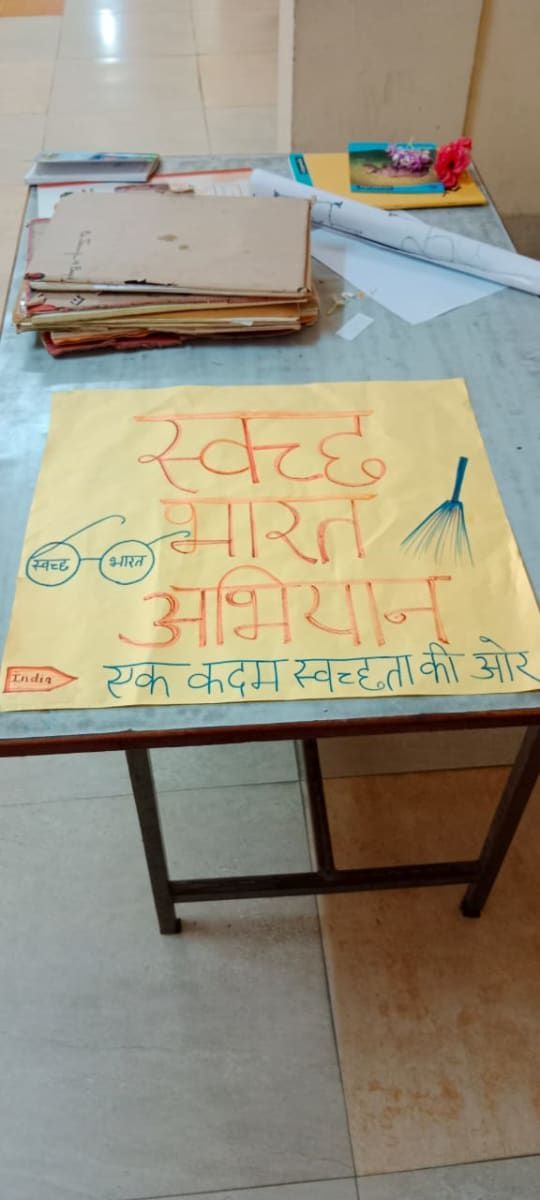 स्वच्छ
भारत
स्वच्छ भारत
अभियान
India
एक कदम स्वच्छता की ओर